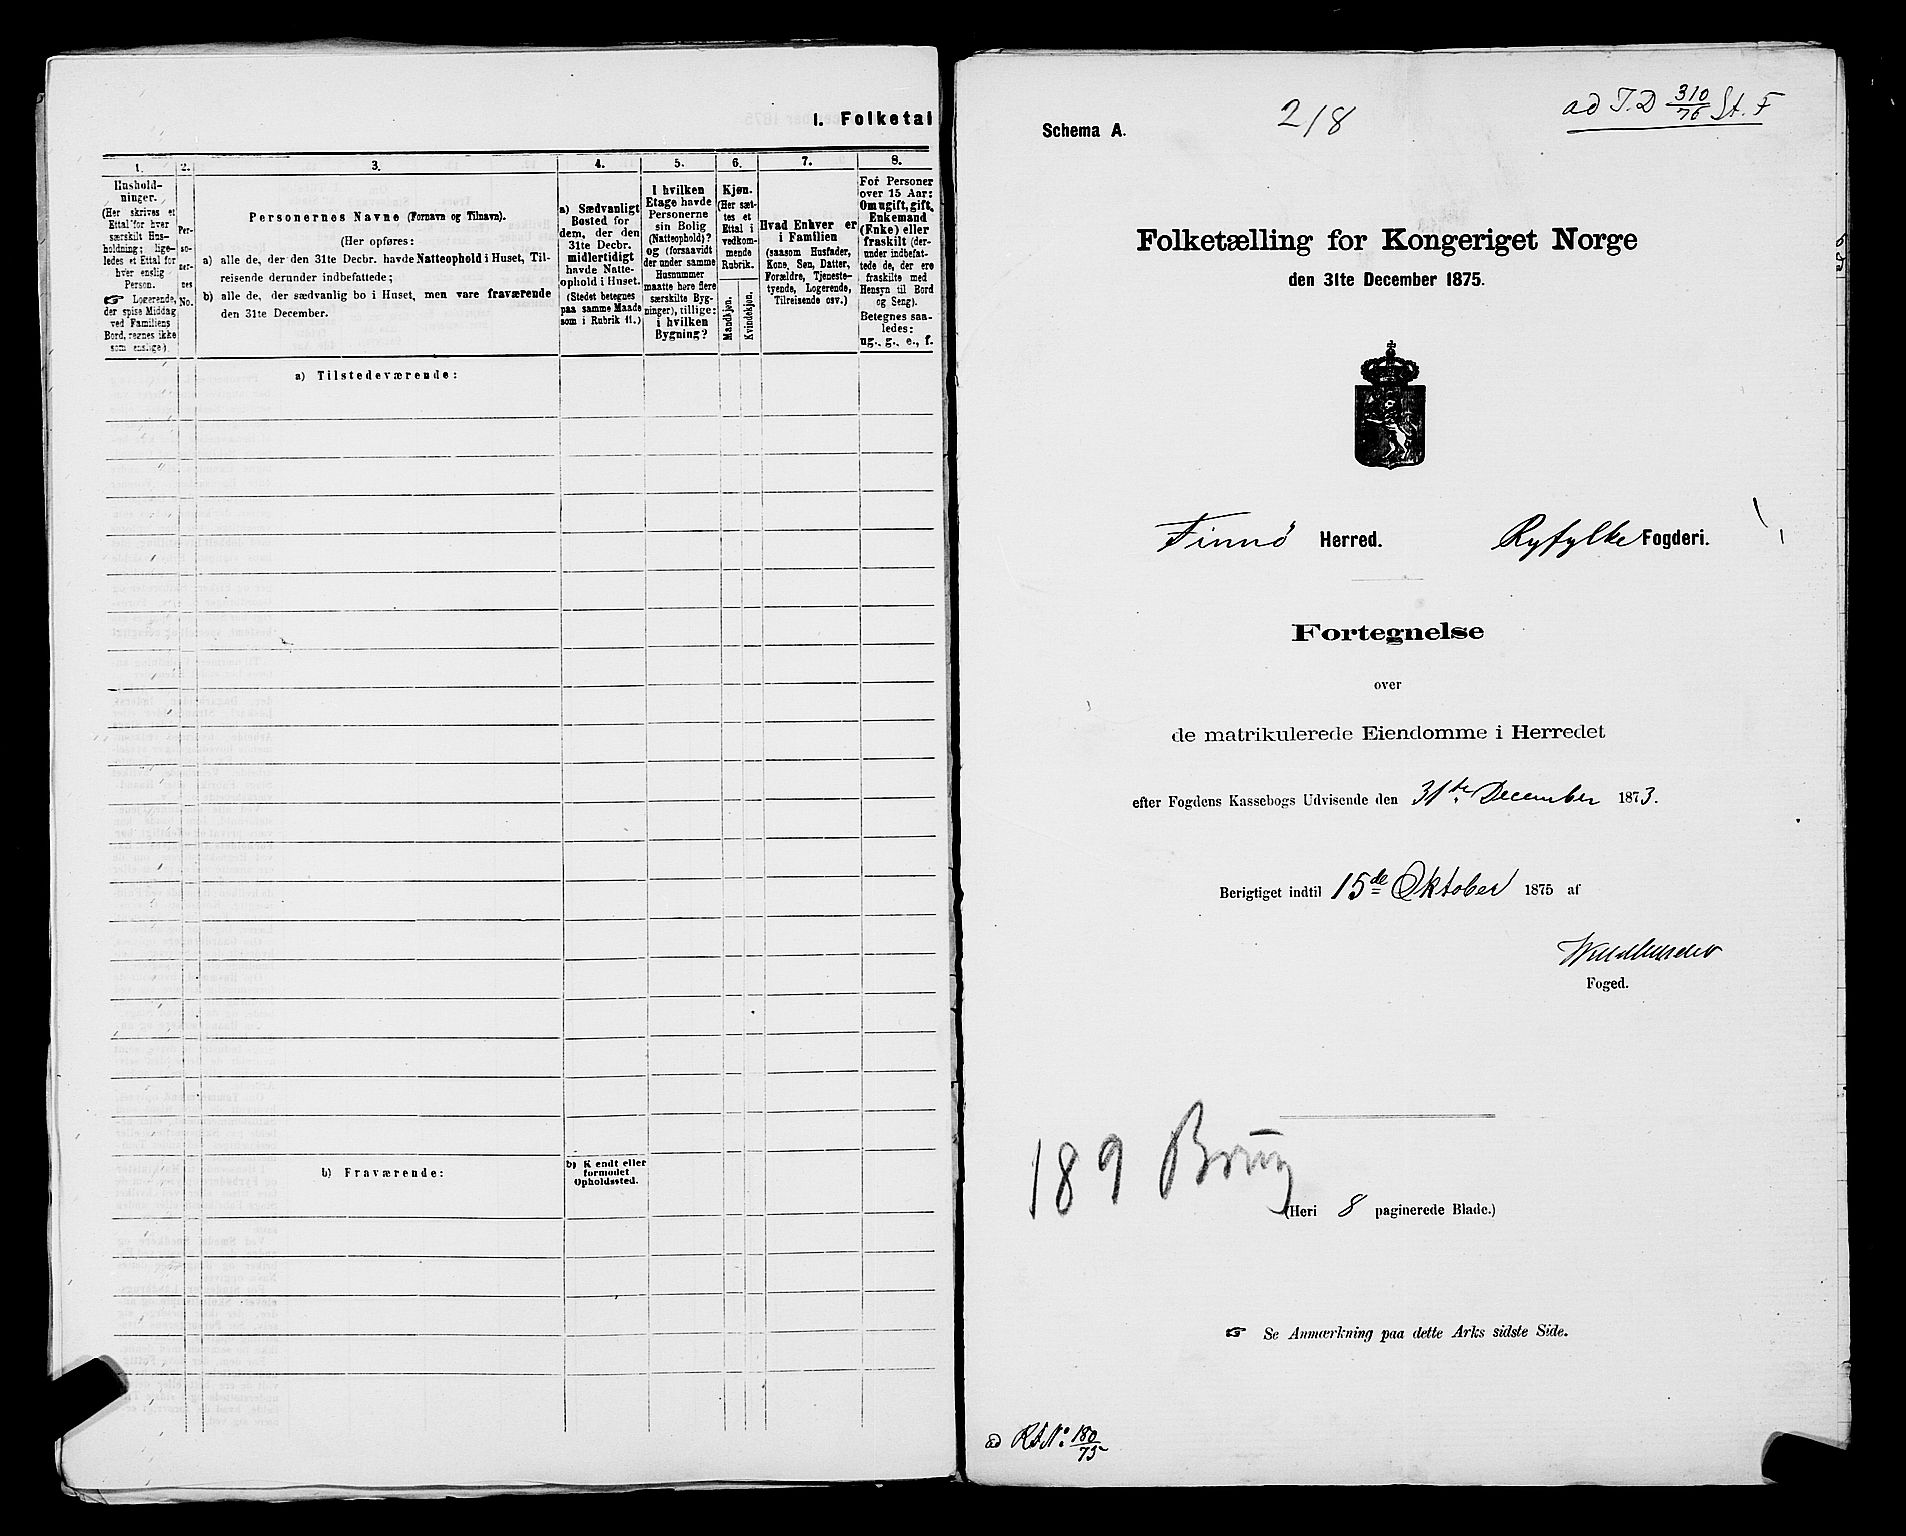 I. Folketal
1. 2. 3. 4. 5. 6. 7. 8.
Hushold-
ninger.
(Her skrives et
Ettal for hver
særskilt Hus-
holdning; lige-
ledes et Ettal for
hver enslig
Person.
☞ Logerende,
der spise Middag
ved Familiens
Bord, regnes ikke
som enslige.)
Per-
so-
ner-
nes
No.
Personernes Navne (Fornavn og Tilnavn).
(Her opføres:
a) alle de, der den 31te Decbr. havde Natteophold i Huset, Til-
reisende derunder indbefattede;
b) alle de, der sædvanlig bo i Huset, men vare fraværende
den 31te December.
a) Sædvanligt
Bosted for
dem, der den
31te Decbr.
midlertidigt
havde Natte-
ophold i Huset.
(Stedet betegnes
paa samme Maade
som i Rubrik 11.)
I hvilken
Etage havde
Personerne
sin Bolig
(Natteophold)?
og (forsaavidt
der under samme
Husnummer
maatte høre flere
særskilte Byg-
ninger), tillige:
i hvilken
Bygning?
Kjøn.
(Her sæt-
tes et
Ettal i
vedkom-
mende
Rubrik.
Mandkjøn.
Kvindekjøn.
Hvad Enhver er
i Familien
(saasom Husfader,
Kone, Søn, Datter,
Forældre, Tjeneste-
tyende, Logerende,
Tilreisende osv.)
For Personer
over 15 Aar:
Om ugift, gift,
Enkemand
(Enke) eller
fraskilt (der-
under indbefat-
tede de, der ere
fraskilte med
Hensyn til Bord
og Seng).
Betegnes saa-
ledes:
ug., g., e., f.
a) Tilstedeværende:
b) Fraværende:
b) Kjendt eller
formodet
Opholdssted.
218
ad J.D 310/76 St. F
Schema A.
Folketælling for Kongeriget Norge
den 31te December 1875.
Finnö Herred. Ryfylke Fogderi.
Fortegnelse
over
de matrikulerede Eiendomme i Herredet
efter Fogdens Kassebogs Udvisende den 31te December 1873.
Berigtiget indtil 15de Oktober 1875 af
Foged.
189 Brug
(Heri 8 paginerede Blade.)
☞ Se Anmærkning paa dette Arks sidste Side.
ad RA No. 180/75